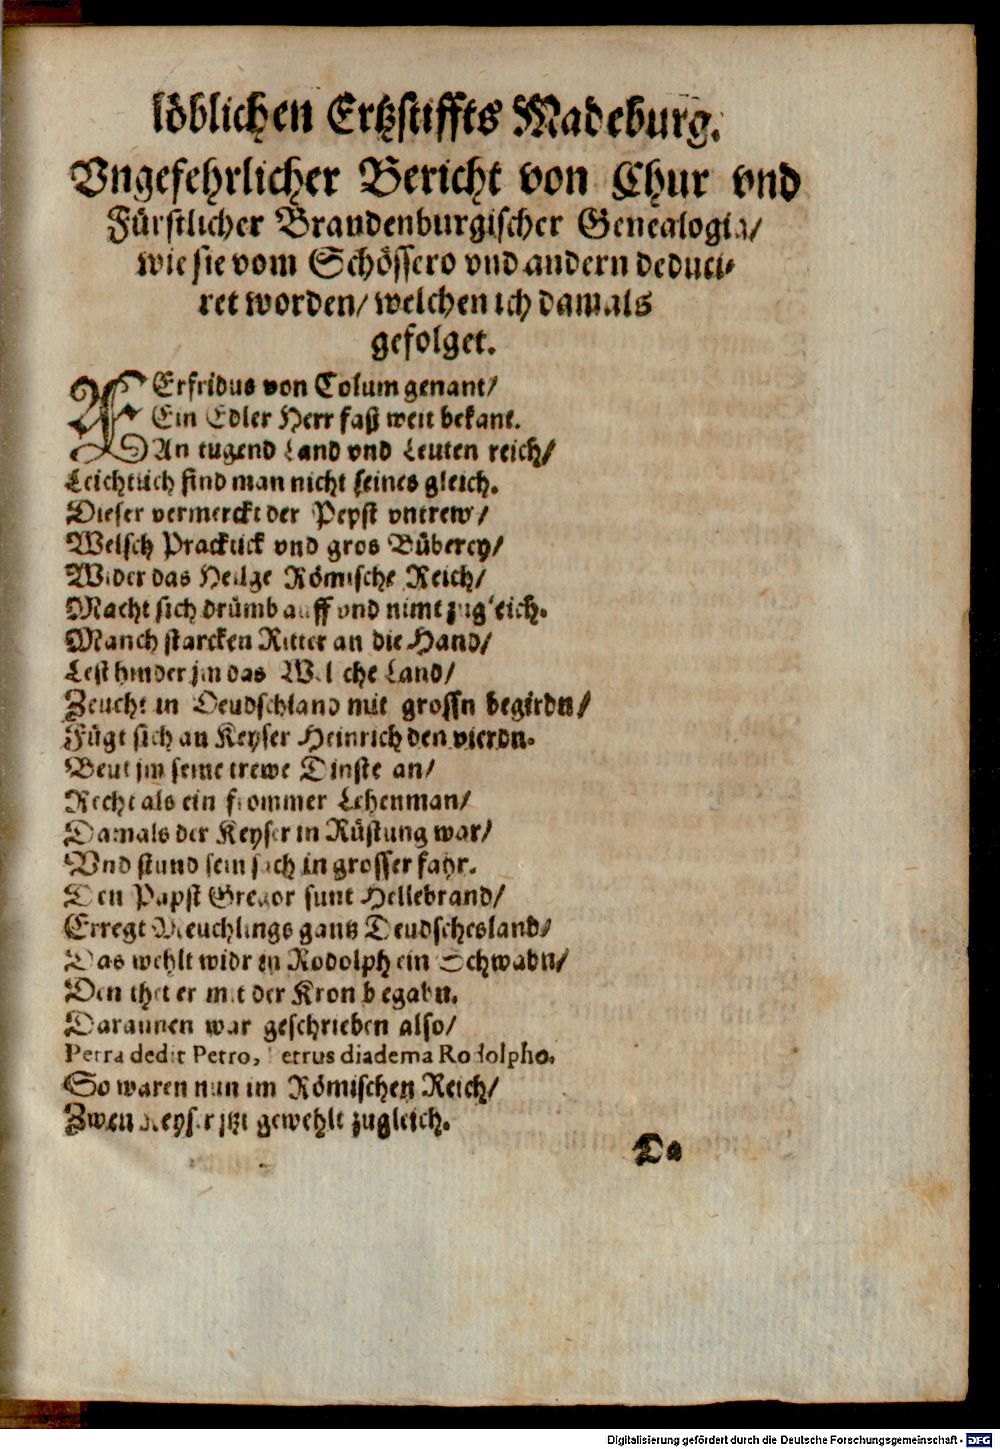 löblichen Ertzstiffts Madeburg.
Vngefehrlicher Bericht von Chur vnd
Fürstlicher Brandenburgischer Genealogia/
wie sie vom Schössero vnd andern deduci-
ret worden/ welchen ich damals
gefolget.
WErfridus von Colum genant/
Ein Edler Herr fast weit bekant.
An tugend Land vnd Leuten reich/
Leichtlich find man nicht seines gleich.
Dieser vermerckt der Pepst vntrew/
Welsch Pracktick vnd gros Büberey/
Wider das Heilge Römische Reich/
Macht sich drümb auff vnd nimt zugleich.
Manch starcken Ritter an die Hand/
Lest hinder jm das Welsche Land/
Zeucht in Deudschland mit grossn begirdn/
Fügt sich an Keyser Heinrich den vierdn.
Beut jm seine trewe Dinste an/
Recht als ein frommer Lehenman/
Damals der Keyser in Rüstung war/
Vnd stund sein sach in grosser fahr.
Den Papst Gregor sunt Hellebrand/
Erregt Meuchlings gantz Deudschesland/
Das wehlt widr jn Rodolph ein Schwabn/
Den thet er mit der Kron begabn.
Darannen war geschrieben also/
Petra dedit Petro, Petrus diadema Rodolpho.
So waren nun im Römischen Reich/
Zwen Keyser jtzt gewehlt zugleich.
Da
Digitalisierung gefördert durch die Deutsche Forschungsgemeinschaft - DFG